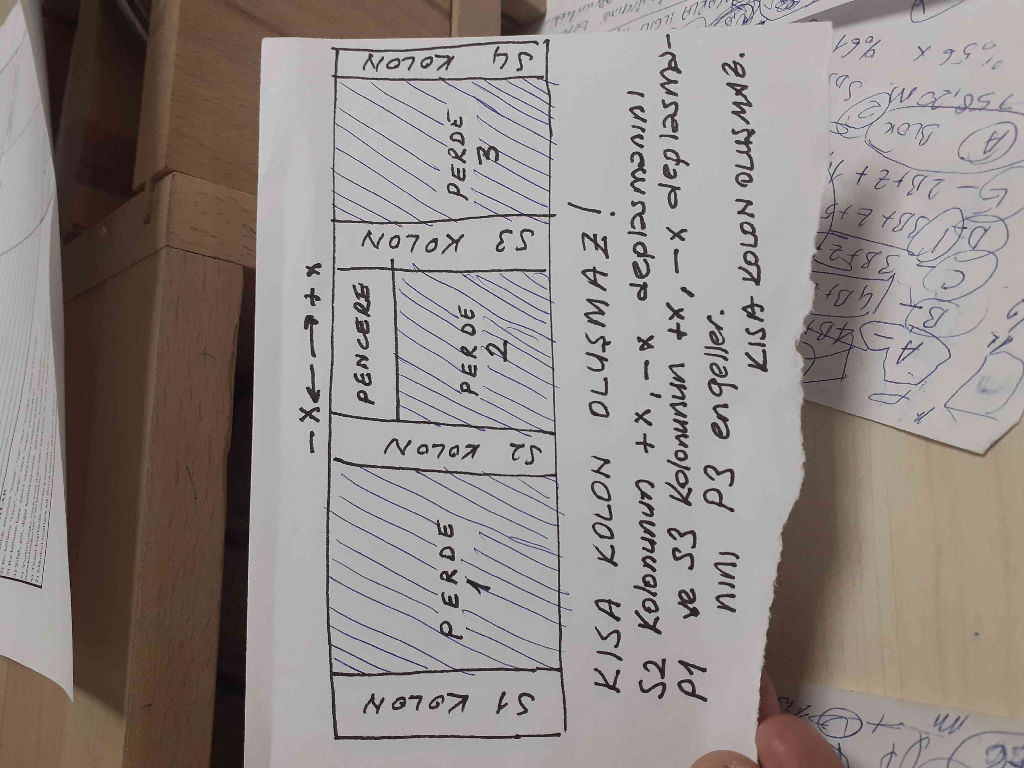 -X ← → +X
S1 KOLON
PERDE
1
S2 KOLON
PENCERE
PERDE
2
S3 KOLON
PERDE
3
S4 KOLON
KISA KOLON OLUŞMAZ!
S2 Kolonunun +X, -X deplasmanını
P1 ve S3 Kolonunun +X, -X deplasma-
nını P3 engeller.
KISA KOLON OLUŞMAZ.
A
BLOK